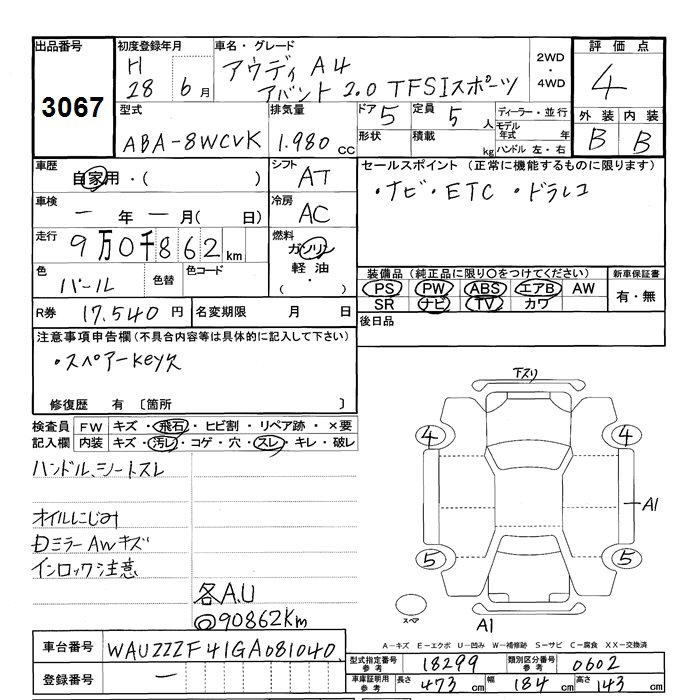 出品番号
3067
初度登録年月
H
28 6月
車名・グレード
アウディ A4
アバント 2.0 TFSIスポーツ
2WD
・
4WD
評価点
4
外装 内装
B B
型式
ABA-8WCVK
排気量
1.980 cc
ドア 5
定員 5 人
形状
積載 kg
ディーラー・並行
モデル年式 年
ハンドル 左・右
車歴
自家用・( )
シフト
AT
セールスポイント (正常に機能するものに限ります)
・ナビ・ETC ・ドラレコ
車検
一 年 一 月( 日)
冷房
AC
走行
9万0千862km
燃料
ガソリン
軽油
( ・ )
色
パール
色替
色コード
装備品 (純正品に限り○をつけてください)
PS PW ABS エアB AW
SR ナビ TV カワ
新車保証書
有・無
R券 17.540 円
名変期限 月 日
後日品
注意事項申告欄(不具合内容等は具体的に記入して下さい)
・スペアーkeyズ
修復歴 有 〔箇所 〕
検査員記入欄
FW キズ・飛石・ヒビ割・リペア跡・×要
内装 キズ・汚レ・コゲ・穴・スレ・キレ・破レ
ハンドル、シートスレ
オイルにじみ
ミラーAwキズ
インロック注意
各A.U
@90862Km
下スリ
4 4
A1
5 5
スペア
A1
A−キズ E−エクボ U−凹み W−補修跡 S−サビ C−腐食 XX−交換済
車台番号 WAUZZZF41GA081040
登録番号 一
型式指定番号 参考 18299
類別区分番号 参考 0602
車庫証明用 参考 長さ 473 cm 幅 184 cm 高さ 143 cm